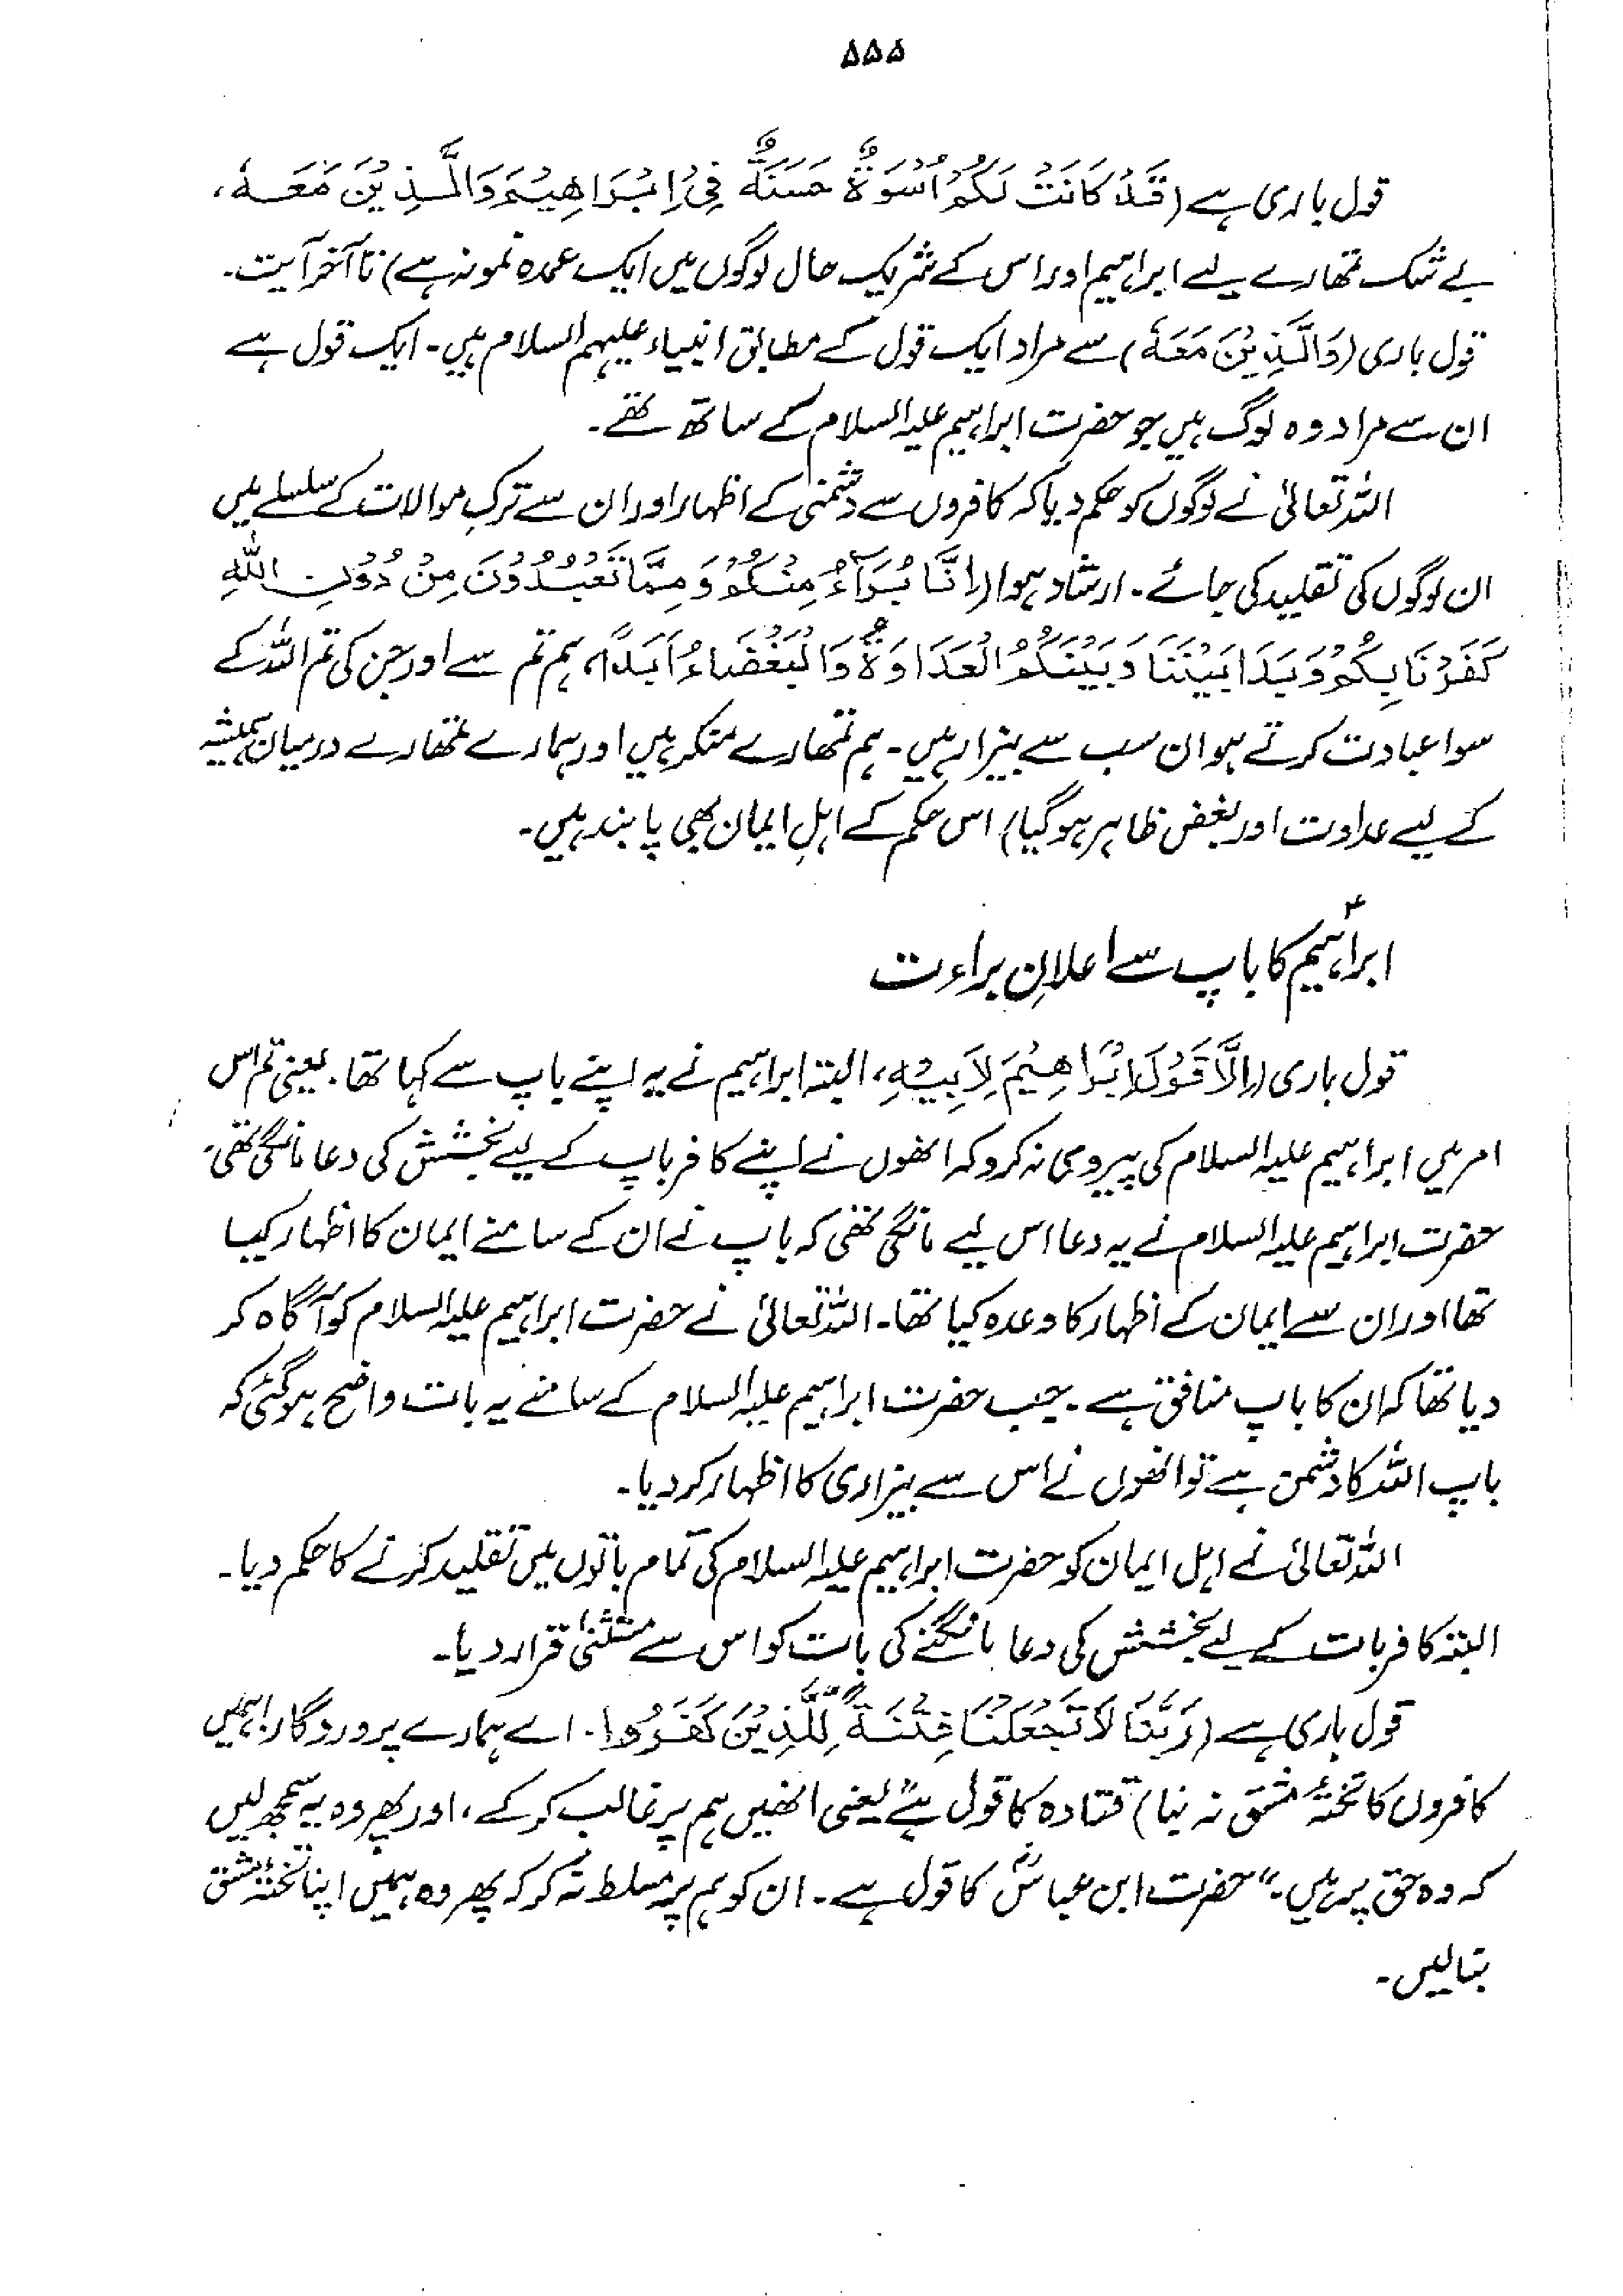 ۵۵۵
قول باری ہے (قَدْ كَانَتْ لَكُمْ اُسْوَةٌ حَسَنَةٌ فِیْ اِبْرَاهِیْمَ وَالَّذِیْنَ مَعَهٗ،
بے شک تمھارے لیے ابراہیم اور اس کے شریک حال لوگوں میں ایک عمدہ نمونہ ہے) تا آخر آیت۔
قول باری (وَالَّذِیْنَ مَعَهٗ) سے مراد ایک قول کے مطابق انبیاء علیہم السلام ہیں۔ ایک قول ہے
ان سے مراد وہ لوگ ہیں جو حضرت ابراہیم علیہ السلام کے ساتھ تھے۔
اللہ تعالیٰ نے لوگوں کو حکم دیا کہ کافروں سے دشمنی کے اظہار اور ان سے ترکِ موالات کے سلسلے میں
ان لوگوں کی تقلید کی جائے۔ ارشاد ہوا (اِنَّا بُرَآءُ مِنْكُمْ وَ مِمَّا تَعْبُدُوْنَ مِنْ دُوْنِ اللّٰهِ
كَفَرْنَا بِكُمْ وَ بَدَا بَیْنَنَا وَ بَیْنَكُمُ الْعَدَاوَةُ وَالْبَغْضَاءُ اَبَدًا، ہم تم سے اور جن کی تم اللہ کے
سوا عبادت کرتے ہو ان سب سے بیزار ہیں۔ ہم تمھارے منکر ہیں اور ہمارے تمھارے درمیان ہمیشہ
کے لیے عداوت اور بغض ظاہر ہو گیا) اس حکم کے اہلِ ایمان بھی پابند ہیں۔
ابراہیمؑ کا باپ سے اعلانِ براءت
قول باری (اِلَّا قَوْلَ اِبْرَاهِیْمَ لِاَبِیْهِ، البتہ ابراہیم نے یہ اپنے باپ سے کہا تھا۔ یعنی تم اس
امر میں ابراہیم علیہ السلام کی پیروی نہ کرو کہ انھوں نے اپنے کافر باپ کے لیے بخشش کی دعا مانگی تھی۔
حضرت ابراہیم علیہ السلام نے یہ دعا اس لیے مانگی تھی کہ باپ نے ان کے سامنے ایمان کا اظہار کیا
تھا اور ان سے ایمان کے اظہار کا وعدہ کیا تھا۔ اللہ تعالیٰ نے حضرت ابراہیم علیہ السلام کو آگاہ کر
دیا تھا کہ ان کا باپ منافق ہے۔ جب حضرت ابراہیم علیہ السلام کے سامنے یہ بات واضح ہو گئی کہ
باپ اللہ کا دشمن ہے تو انھوں نے اس سے بیزاری کا اظہار کر دیا۔
اللہ تعالیٰ نے اہل ایمان کو حضرت ابراہیم علیہ السلام کی تمام باتوں میں تقلید کرنے کا حکم دیا۔
البتہ کافر باپ کے لیے بخشش کی دعا مانگنے کی بات کو اس سے مستثنیٰ قرار دیا۔
قول باری ہے (رَبَّنَا لَا تَجْعَلْنَا فِتْنَةً لِّلَّذِیْنَ كَفَرُوْا۔ اے ہمارے پروردگار! ہمیں
کافروں کا تختۂ مشق نہ بنا) قتادہ کا قول ہے "یعنی انھیں ہم پر غالب کر کے، اور پھر وہ یہ سمجھ لیں
کہ وہ حق پر ہیں۔" حضرت ابن عباسؓ کا قول ہے۔ ان کو ہم پر مسلط نہ کر کہ پھر وہ ہمیں اپنا تختۂ مشق
بنا لیں۔